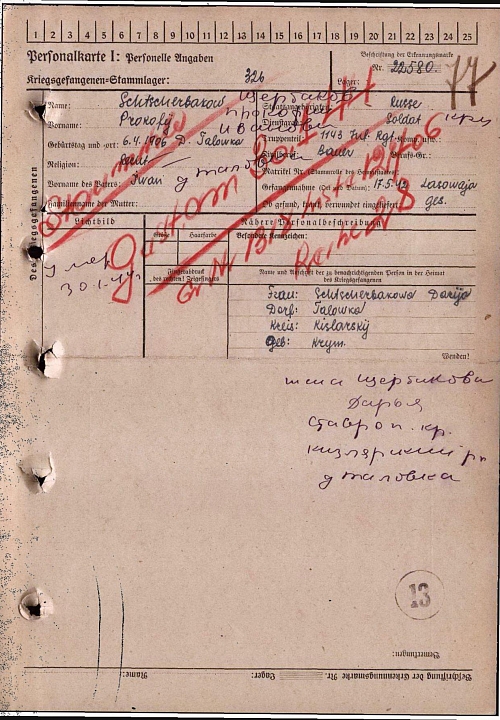 1 2 3 4 5 6 7 8 9 10 11 12 13 14 15 16 17 18 19 20 21 22 23 24 25
Personalkarte I: Personelle Angaben
Beschriftung der Erkennungsmarke
Nr. 22580
77
Kriegsgefangenen-Stammlager: 326
Lager:
Des Kriegsgefangenen
Name: Schtscherbakow Щербаков
Staatsangehörigkeit: Russe
Vorname: Prokofij
Dienstgrad: Soldat
Geburtstag und -ort: 6.4.1906 D. Talowka
Truppenteil: 1143 Inf. Rgt.
Religion:
Bauer Berufs-Gr.:
Vorname des Vaters: Iwan д Таловка
Matrikel Nr. (Stammrolle des Heimatstaates):
Familienname der Mutter:
Gefangennahme (Ort und Datum): 17.5.42 Lasowaja
Ob gesund, krank, verwundet eingeliefert: ges.
Lichtbild
Nähere Personalbeschreibung
Größe Haarfarbe Besondere Kennzeichen:
умер
30.1.44г
Fingerabdruck
des rechten! Zeigefingers
Name und Anschrift der zu benachrichtigenden Person in der Heimat
des Kriegsgefangenen
Frau: Schtscherbakowa Darija
Dorf: Talowka
Kreis: Kislarskij
Geb: Krym.
Wenden!
жена Щербакова
Дарья
Ставроп. кр.
Кизлярский рн
д Таловка
13
Bemerkungen:
Beschriftung der Erkennungsmarke Nr. Lager: Name: